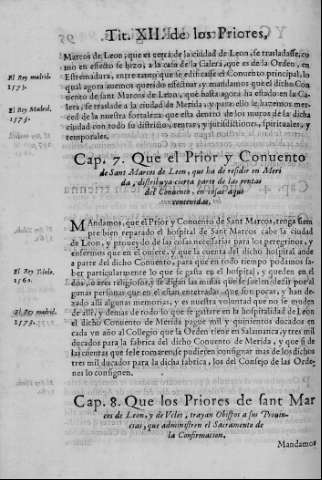 Tit. XII. de los Priores,
Marcos de Leon, que es cerca de la ciudad de Leon, se trasladasse, co
mo en efecto se hizo, a la casa de la Calera, que es de la Orden, en
El Rey madrid. 1573.
Estremadura, entre tanto que se edificasse el Conuento principal, lo
qual agora auemos querido efectuar, y mandamos que el dicho Con
uento de sant Marcos de Leon, que hasta agora ha estado en la Ca
El Rey Madrid. 1573.
lera, se traslade a la ciudad de Merida, y para ello le hazemos mer-
ced de la nuestra fortaleza que esta dentro de los muros de la dicha
ciudad con todo su districto, rentas, y jurisdictiones, spirituales, y
temporales.
Cap. 7. Que el Prior y Conuento
de Sant Marcos de Leon, que ha de residir en Meri
da, distribuya cierta parte de las rentas
del Conuento, en cosas aqui
contenidas.
MAndamos, que el Prior y Conuento de Sant Marcos, tenga siem
pre bien reparado el hospital de Sant Marcos cabe la ciudad
de Leon, y proueydo de las cosas necessarias para los peregrinos, y
enfermos que en el ouiere, y que la cuenta del dicho hospital ande
a parte del dicho Conuento, para que en todo tiempo podamos sa-
El Rey Toledo. 1560.
ber particularmente lo que se gasta en el hospital, y queden en el
dos, o tres religiosos, y se digan las missas que se suelen dezir por al
gunas personas que en el estan enterradas, que son pocas, y han de-
xado alli algunas memorias, y es nuestra voluntad que no se muden
El Rey madrid. 1573.
de alli, y demas de todo lo que se gastare en la hospitalidad de Leon
el dicho Conuento de Merida pague mil y quinientos ducados en
cada vn año al Collegio que la Orden tiene en Salamanca, y tres mil
ducados para la fabrica del dicho Conuento de Merida, y que si de
las cuentas que se le tomaren se pudieren consignar mas de los dichos
tres mil ducados para la dicha fabrica, los del Consejo de las Orde-
nes lo consignen.
Cap. 8. Que los Priores de sant Mar
cos de Leon, y de Vcles, trayan Obispos a sus Prouin-
cias, que administren el Sacramento de
la Confirmation.
Mandamos